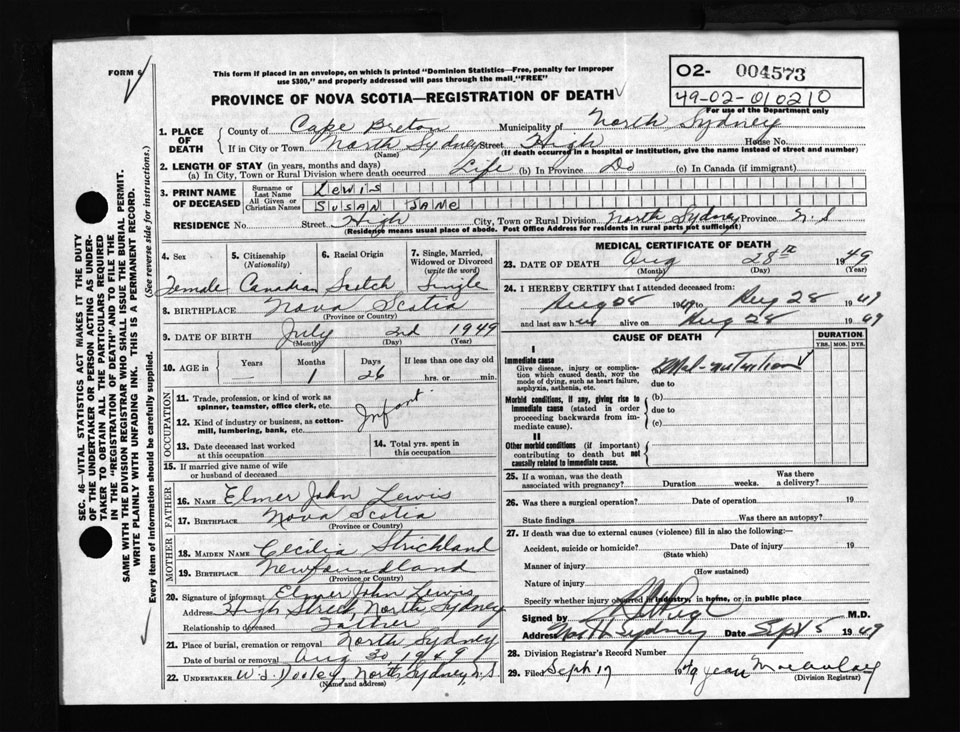 FORM 6
This form if placed in an envelope, on which is printed "Dominion Statistics—Free, penalty for improper
use $300," and properly addressed will pass through the mail "FREE"
PROVINCE OF NOVA SCOTIA—REGISTRATION OF DEATH
O2- 004573
49-02-010210
For use of the Department only
1. PLACE OF DEATH
County of Cape Breton Municipality of North Sydney
If in City or Town North Sydney Street High House No.
(Name) (If death occurred in a hospital or institution, give the name instead of street and number)
2. LENGTH OF STAY (in years, months and days)
(a) In City, Town or Rural Division where death occurred Life (b) In Province Do (c) In Canada (if immigrant)
3. PRINT NAME OF DECEASED
Surname or Last Name Lewis
All Given or Christian Names SUSAN JANE
RESIDENCE No. Street High City, Town or Rural Division North Sydney Province N.S
(Residence means usual place of abode. Post Office Address for residents in rural parts not sufficient)
4. Sex 5. Citizenship (Nationality) 6. Racial Origin 7. Single, Married, Widowed or Divorced (write the word)
Female Canadian Scotch Single
8. BIRTHPLACE Nova Scotia
(Province or Country)
9. DATE OF BIRTH July 3rd 1949
(Month) (Day) (Year)
10. AGE in Years Months Days If less than one day old
1 26 hrs. or min.
OCCUPATION
11. Trade, profession, or kind of work as
spinner, teamster, office clerk, etc.
Infant
12. Kind of industry or business, as cotton-
mill, lumbering, bank, etc.
13. Date deceased last worked
at this occupation
14. Total yrs. spent in
this occupation
15. If married give name of wife
or husband of deceased
FATHER
16. NAME Elmer John Lewis
17. BIRTHPLACE Nova Scotia
(Province or Country)
MOTHER
18. MAIDEN NAME Cecilia Strickland
19. BIRTHPLACE Newfoundland
(Province or Country)
20. Signature of informant Elmer John Lewis
Address High Street, North Sydney
Relationship to deceased Father
21. Place of burial, cremation or removal North Sydney
Date of burial or removal Aug 30 1949
22. UNDERTAKER W.J. Dooley, North Sydney, N.S.
(Name and address)
MEDICAL CERTIFICATE OF DEATH
23. DATE OF DEATH Aug 28th 1949
(Month) (Day) (Year)
24. I HEREBY CERTIFY that I attended deceased from:
Aug 28 1949 to Aug 28 1949
and last saw her alive on Aug 28 1949
CAUSE OF DEATH
DURATION
YRS. MOS. DYS.
I
Immediate cause
Give disease, injury or complica-
tion which caused death, NOT the
mode of dying, such as heart failure,
asphyxia, asthenia, etc.
Mal-nutrition
due to
Morbid conditions, if any, giving rise to
immediate cause (stated in order
proceeding backwards from im-
mediate cause).
(b)
due to
(c)
II
Other morbid conditions (if important)
contributing to death but not
causally related to immediate cause.
25. If a woman, was the death
associated with pregnancy? Duration weeks. Was there
a delivery?
26. Was there a surgical operation? Date of operation 19
State findings Was there an autopsy?
27. If death was due to external causes (violence) fill in also the following:—
Accident, suicide or homicide? Date of injury 19
(State which)
Manner of injury
(How sustained)
Nature of injury
Specify whether injury occurred in industry, in home, or in public place
Signed by M.D.
Address North Sydney Date Sept 5 1949
28. Division Registrar's Record Number
29. Filed Sept 17 1949 Jean MacAulay
(Division Registrar)
SEC. 46—VITAL STATISTICS ACT MAKES IT THE DUTY
OF THE UNDERTAKER OR PERSON ACTING AS UNDER-
TAKER TO OBTAIN ALL THE PARTICULARS REQUIRED
IN THE "REGISTRATION OF DEATH" AND TO FILE THE
SAME WITH THE DIVISION REGISTRAR WHO SHALL ISSUE THE BURIAL PERMIT.
WRITE PLAINLY WITH UNFADING INK. THIS IS A PERMANENT RECORD.
Every item of information should be carefully supplied. (See reverse side for instructions.)